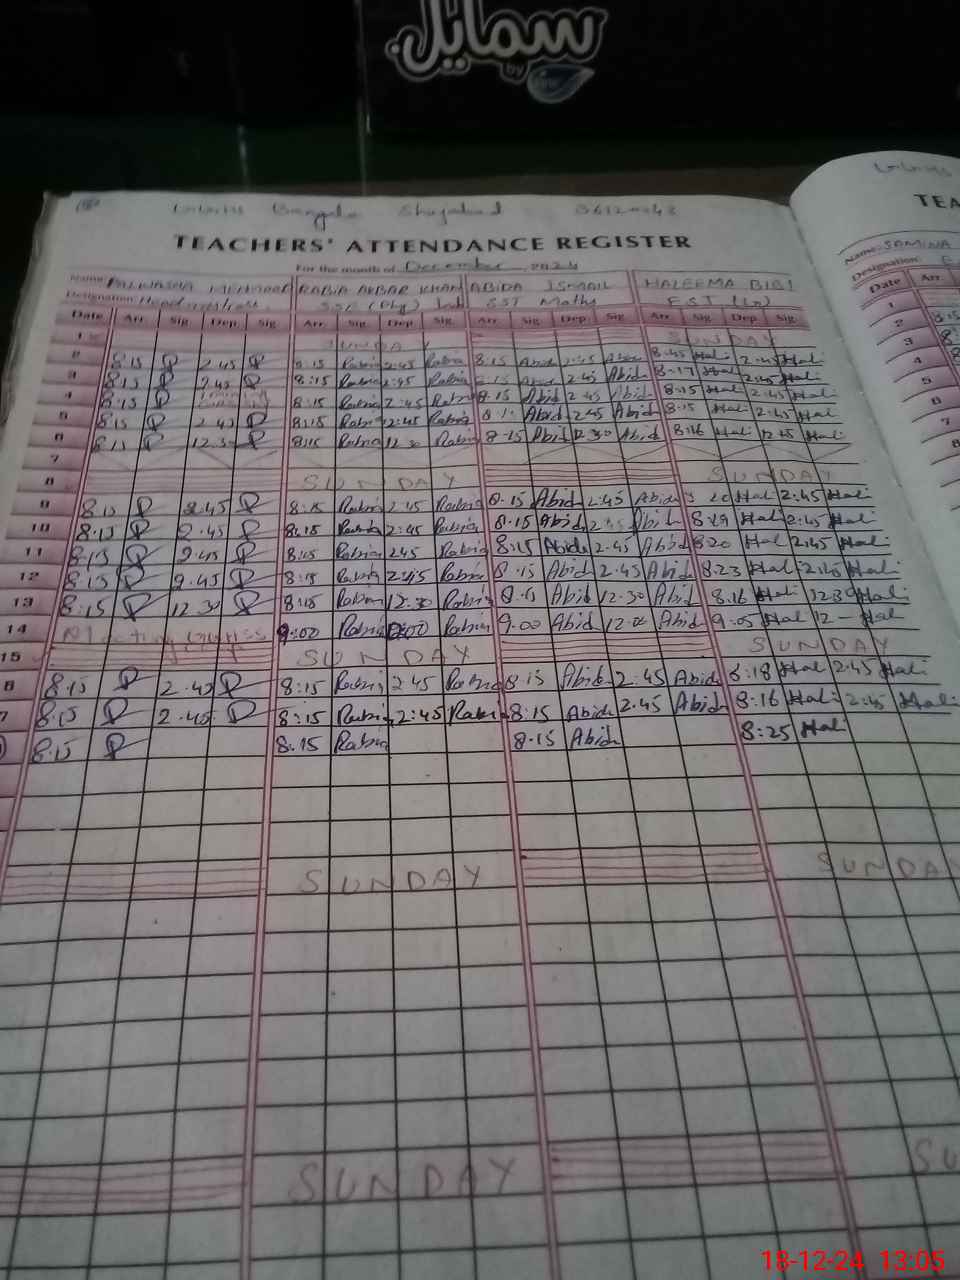 سمائل
by
Shujabad
TEACHERS' ATTENDANCE REGISTER
For the month of December 2024
Name: PALWASHA MEHMOOD RABIA AKBAR KHAN ABIDA ISMAIL HALEEMA BIBI
Designation: Headmistress SSE (Phy) SST Maths EST
Date Arr. Sig. Dep. Sig. Arr. Sig. Dep. Sig. Arr. Sig. Dep. Sig. Arr. Sig. Dep. Sig.
1 SUNDAY SUNDAY
2 8:15 2:45 8:15 Rabia 2:45 Rabia 8:15 Abid 2:45 Abid 8:45 Hali 2:45 Hali
3 8:15 2:45 8:15 Rabia 2:45 Rabia 8:15 Abid 2:45 Abid 8:17 Hali 2:45 Hali
4 8:15 8:15 Rabia 2:45 Rabia 8:15 Abid 2:45 Abid 8:15 Hali 2:45 Hali
5 8:15 2:45 8:15 Rabia 2:45 Rabia Abid 2:45 Abid 8:15 Hali 2:45 Hali
6 8:15 12:30 8:15 Rabia 12:30 Rabia 8:15 Abid 12:30 Abid 8:16 Hali 12:45 Hali
7
8 SUNDAY SUNDAY
9 8:15 2:45 8:15 Rabia 2:45 Rabia 8:15 Abid 2:45 Abid 20 Hali 2:45 Hali
10 8:15 2:45 8:15 Rabia 2:45 Rabia 8:15 Abid 2:45 Abid 8:19 Hali 2:45 Hali
11 8:15 2:45 8:15 Rabia 2:45 Rabia 8:15 Abid 2:45 Abid 8:20 Hali 2:45 Hali
12 8:15 2:45 8:15 Rabia 2:45 Rabia 8:15 Abid 2:45 Abid 8:23 Hali 2:45 Hali
13 8:15 12:30 8:15 Rabia 12:30 Rabia Abid 12:30 Abid 8:16 Hali 12:30 Hali
14 Meeting 9:00 Rabia Rabia 9:00 Abid 12:00 Abid 9:05 Hali 12 - Hali
15 SUNDAY SUNDAY
6 8:15 2:45 8:15 Rabia 2:45 Rabia 8:15 Abid 2:45 Abid 8:18 Hali 2:45 Hali
7 8:15 2:45 8:15 Rabia 2:45 Rabia 8:15 Abid 2:45 Abid 8:16 Hali 2:45 Hali
8:15 8:15 Rabia 8:15 Abid 8:25 Hali
SUNDAY SUNDAY
SUNDAY SU
TEA
Name: SAMINA
Designation:
Date Arr.
1
2
3
4
5
6
7
8
18-12-24 13:05